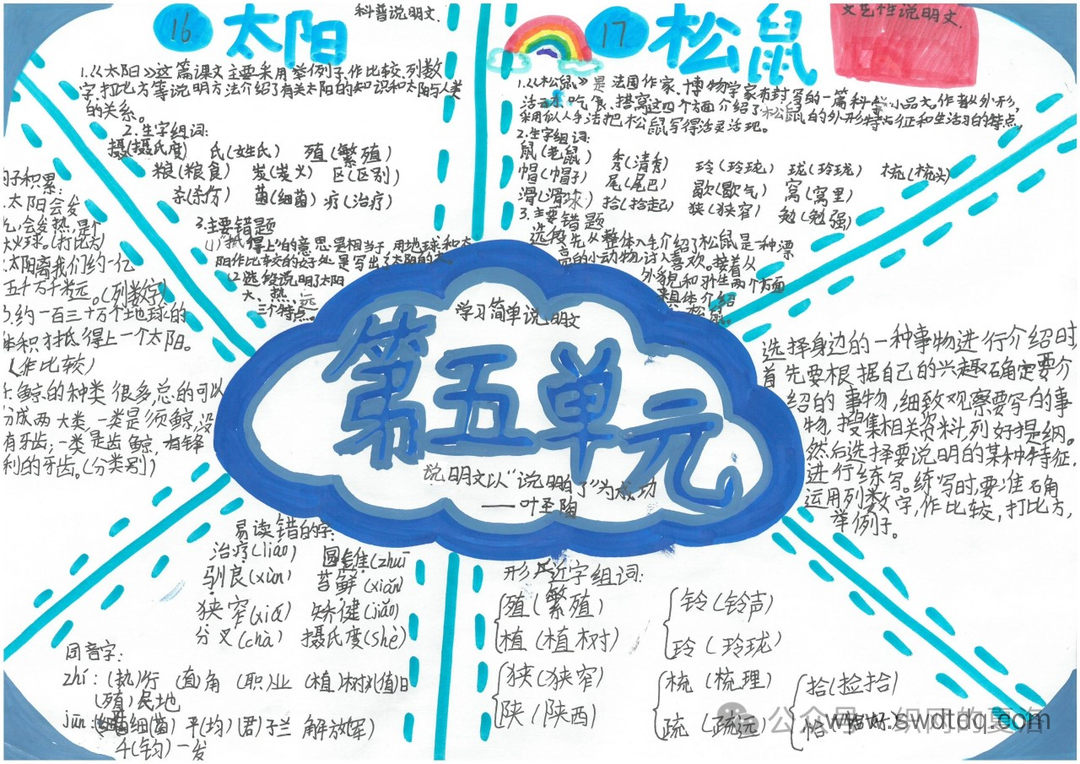 16 太阳
科普说明文.
1.《太阳》这篇课文主要采用举例子,作比较,列数
字,打比方等说明方法介绍了有关太阳的知识和太阳与人类
的关系。
2.生字组词:
摄(摄氏度) 氏(姓氏) 殖(繁殖)
粮(粮食) 发(发义) 区(区别)
杀(杀伤) 菌(细菌) 疗(治疗)
3.主要错题
得上"的意思是相当于,用地球和太
阳作比较的好处是写出了太阳的大
(2选段说明了太阳
大、热、远
三个特点。
17 松鼠
文艺性说明文.
1.《松鼠》是法国作家、博物学家布封写的一篇科学小品文,作者从外形,
活动、吃食、搭窝这四个方面介绍了松鼠的外形特征和生活习性的特点,
采用拟人手法把松鼠写得活灵活现。
2.生字组词:
鼠(老鼠) 秀(清秀) 玲(玲珑) 珑(玲珑) 梳(梳头)
帽(帽子) 尾(尾巴) 歇(歇气) 窝(窝里)
滑(滑) 拾(拾起) 狭(狭窄) 勉(勉强)
3.主要错题
选段先从整体入手介绍了松鼠是一种漂
亮的小动物,讨人喜欢。接着从
外貌和 两个方面
具体介绍
松鼠。
句子积累:
太阳会发
光,会发热,是个
大火球。(打比方)
太阳离我们约一亿
五千万千米远。(列数字)
3.约一百三十万个地球的
体积才抵得上一个太阳。
(作比较)
鲸的种类很多,总的可以
分成两大类,一类是须鲸,没
有牙齿;一类是齿鲸,有锋
利的牙齿。(分类别)
学习简单说明文
第五单元
说明文以"说明白了"为成功
——叶圣陶
选择身边的一种事物进行介绍时,
首先要根据自己的兴趣确定要介
绍的事物,细致观察要写的事
物,搜集相关资料,列好提纲。
然后选择要说明的某种特征,
进行练写。练写时,要准确
运用列数字,作比较,打比方,
举例子。
易读错的字:
治疗(liáo) 圆锥(zhuī
驯良(xùn) 苔藓(xiǎn
狭窄(xiá) 矫健(jiǎo)
分叉(chà) 摄氏度(shè)
同音字:
zhí:(执)行 (直)角 (职)业 (植)树 (值)日
(殖)民地
jūn 细菌 平(均) (君)子兰 解放(军)
千(钧)一发
形近字组词:
殖(繁殖)
植(植树)
狭(狭窄)
陕(陕西)
铃(铃声)
玲(玲珑)
梳(梳理)
疏(疏远)
拾(捡拾)
恰(恰好)
www.swdtdq.com